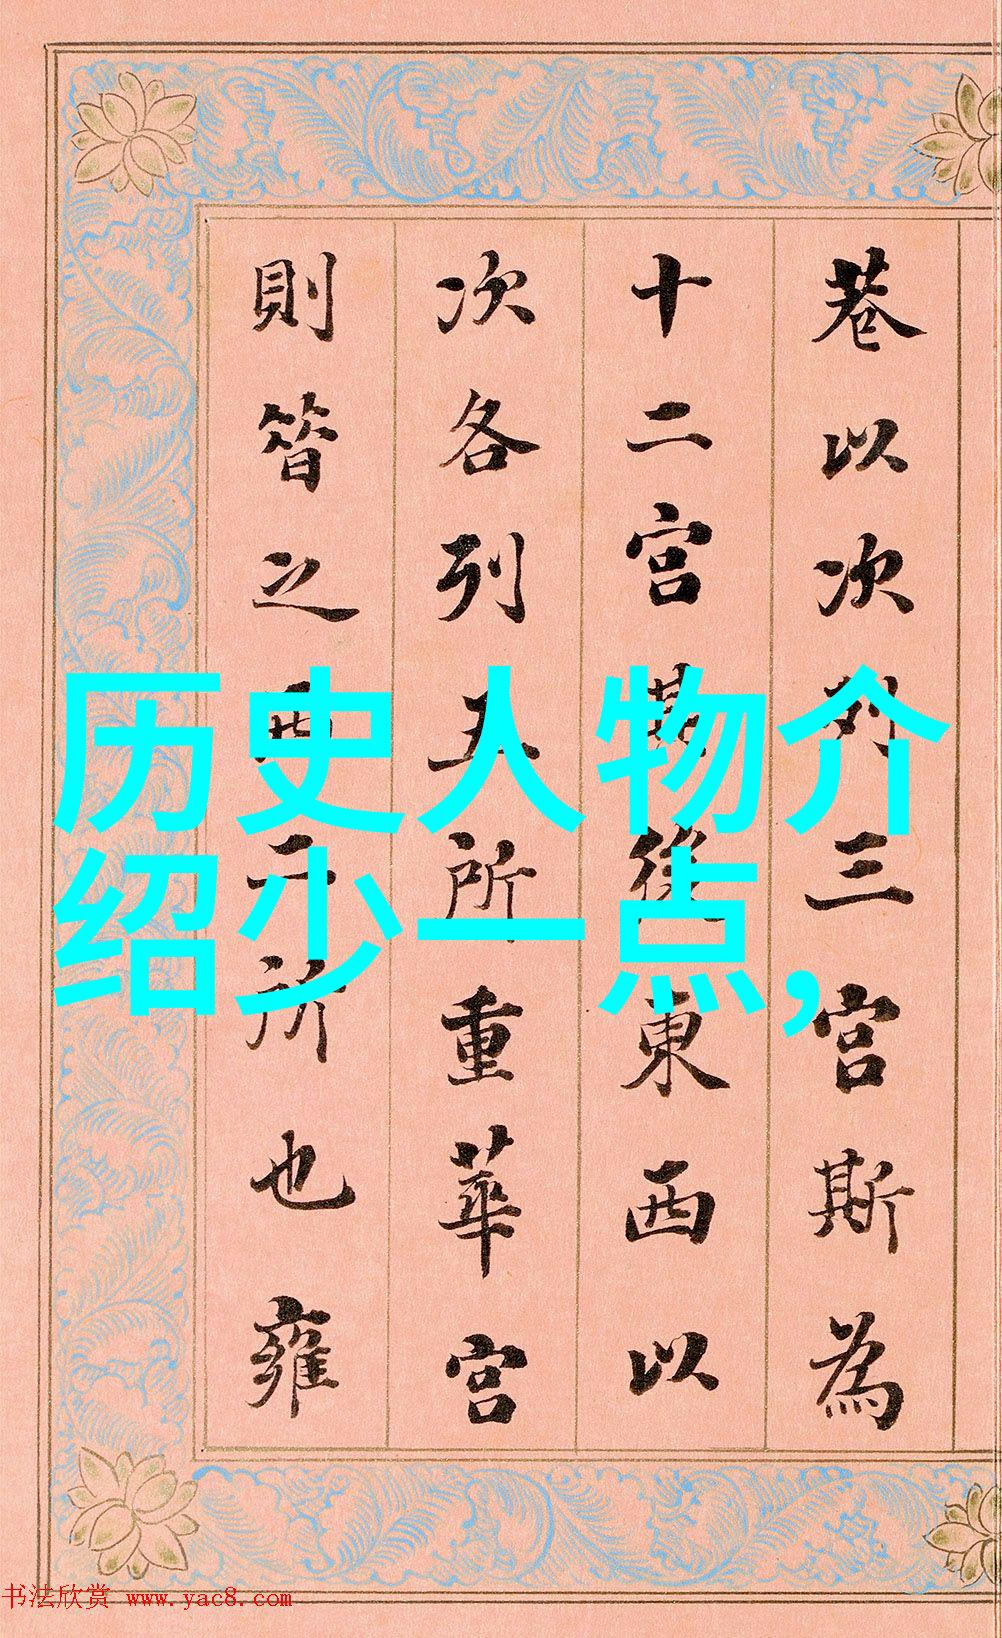 巷以次列三宫斯為
十二宫其後東西以
次各列五所重華宫
則昔之西二所也雍
历史人物介
绍少一点,
书法欣赏 www.yac8.com